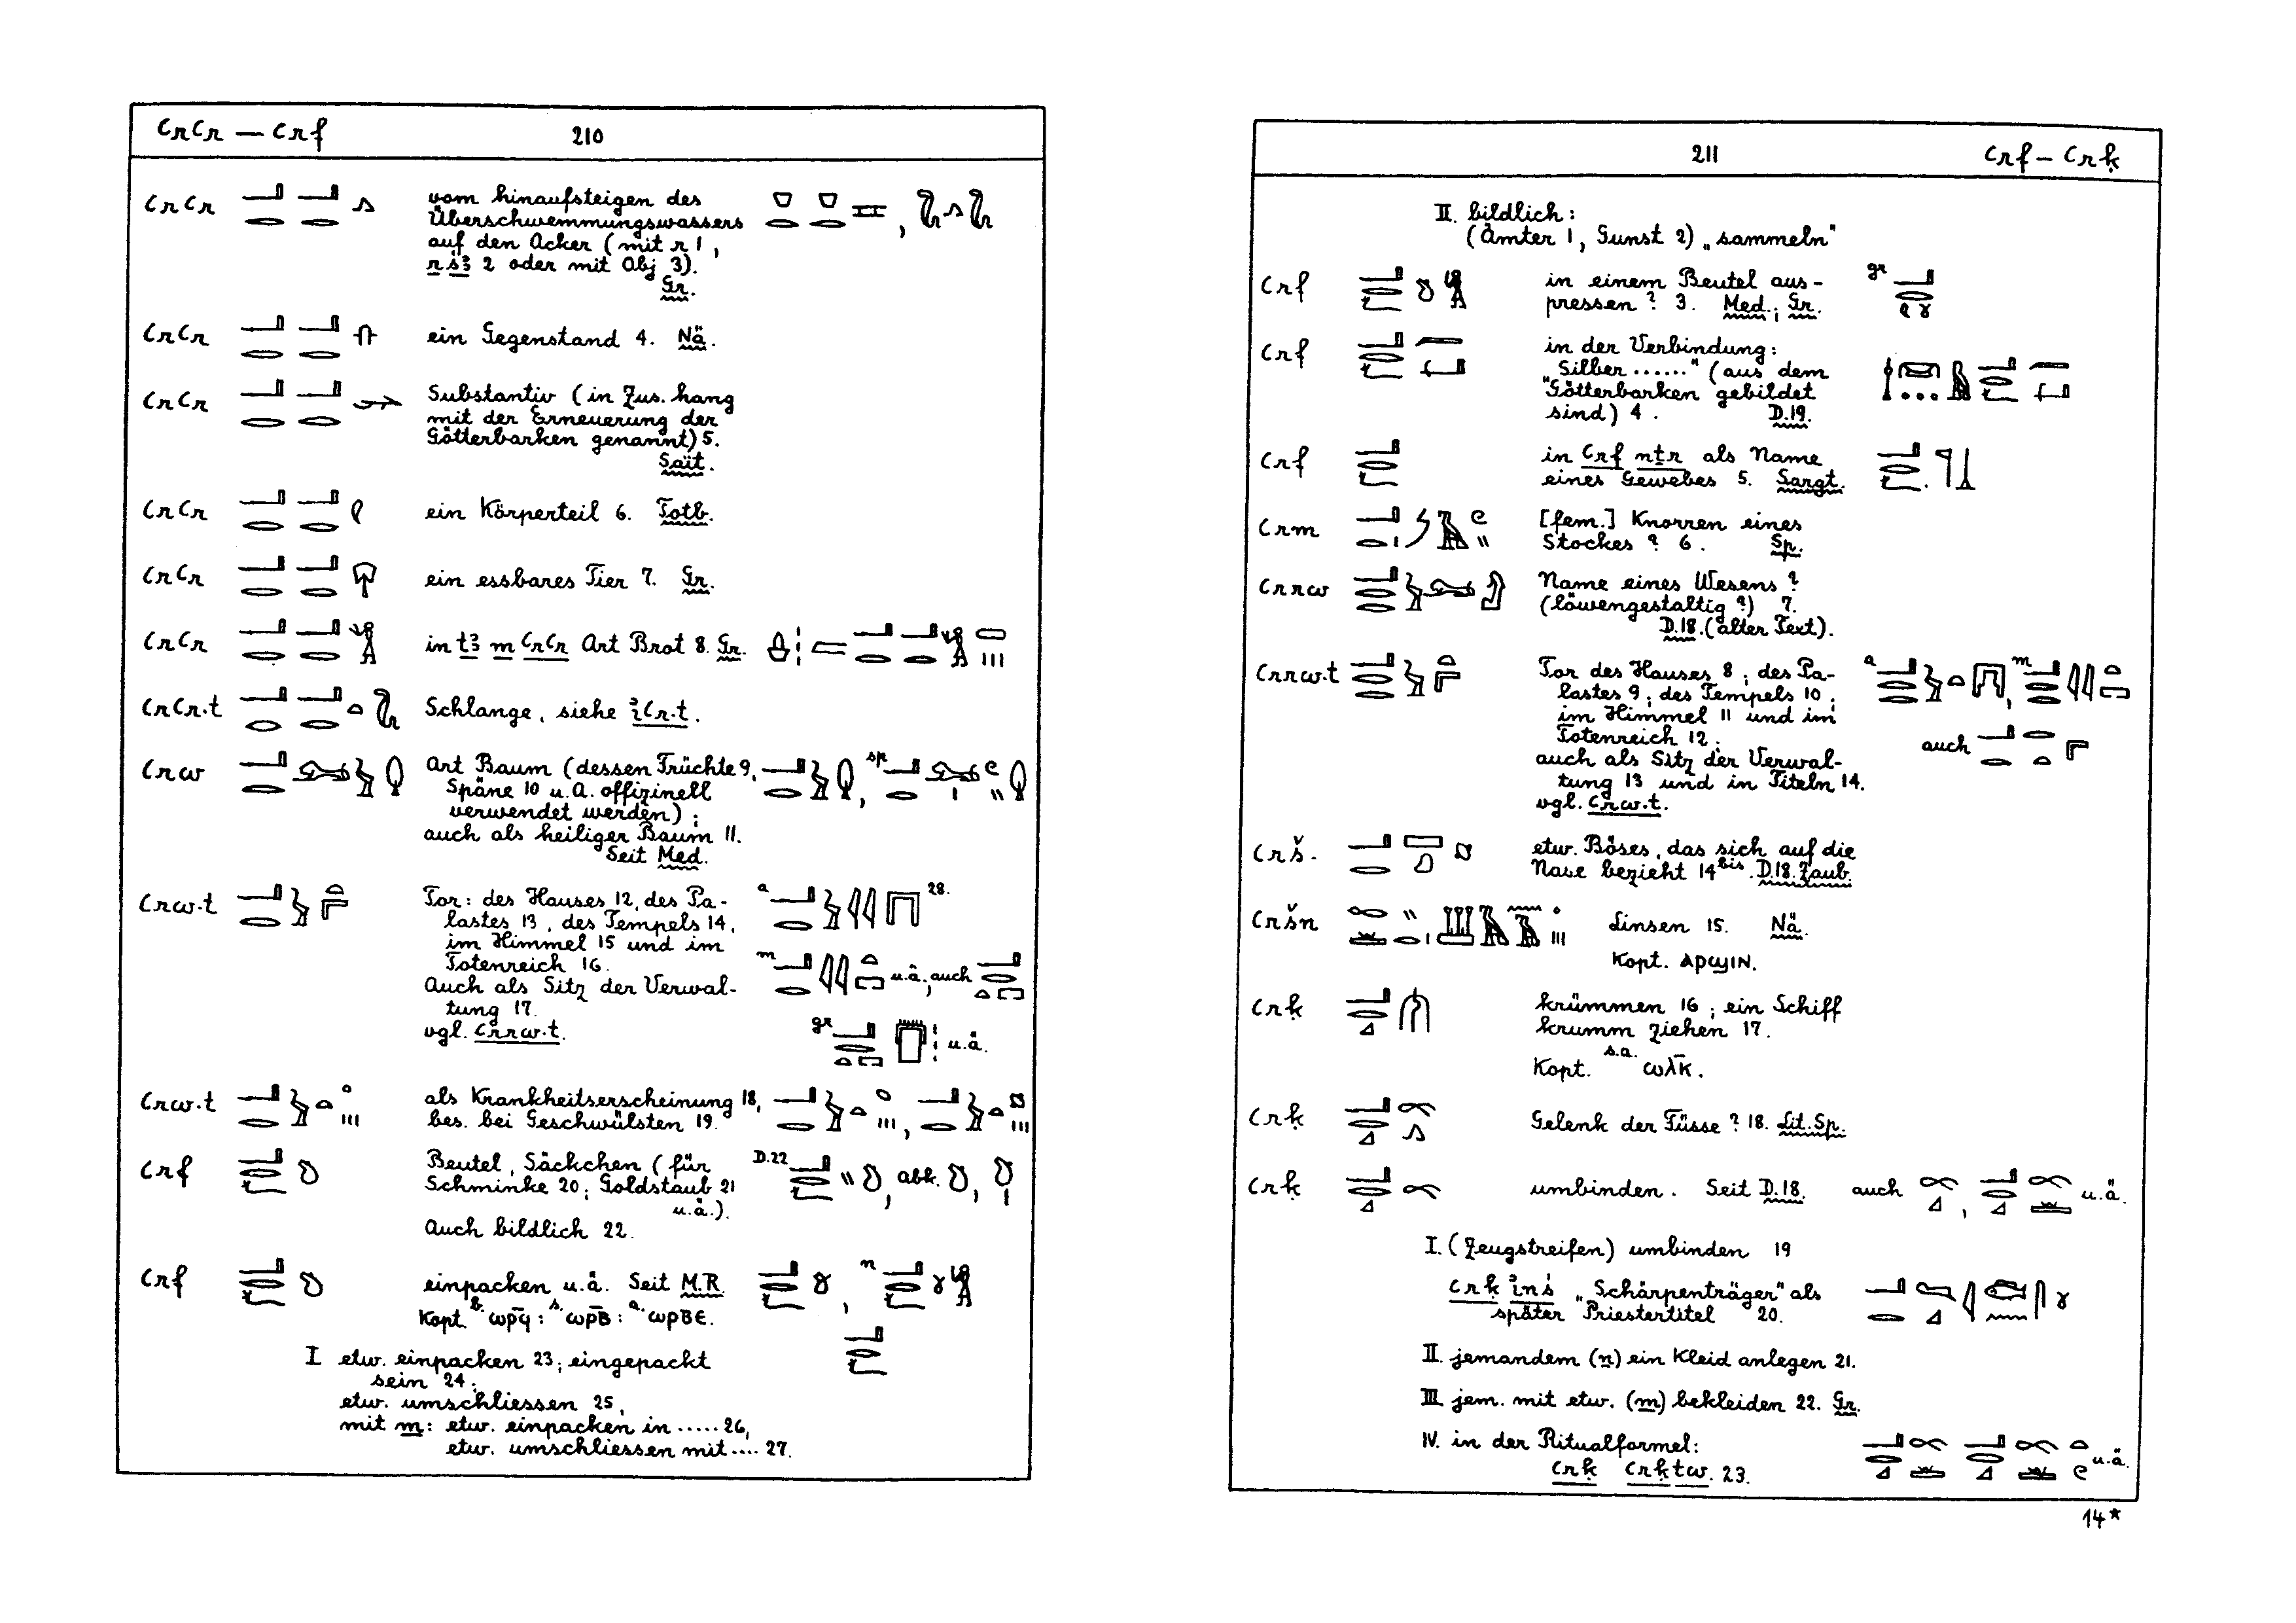 ꜥrꜥr — ꜥrf 210
ꜥrꜥr vom hinaufsteigen des
Überschwemmungswassers
auf den Acker (mit r 1,
r śꜣ 2 oder mit Obj 3).
Gr.
ꜥrꜥr ein Gegenstand 4. Nä.
ꜥrꜥr Substantiv (in Zus.hang
mit der Erneuerung der
Götterbarken genannt) 5.
Sait.
ꜥrꜥr ein Körperteil 6. Totb.
ꜥrꜥr ein essbares Tier 7. Gr.
ꜥrꜥr in tꜣ m ꜥrꜥr Art Brot 8. Gr.
ꜥrꜥr.t Schlange, siehe iꜥr.t.
ꜥrw Art Baum (dessen Früchte 9, sp
Späne 10 u.A. offizinell
verwendet werden);
auch als heiliger Baum 11.
Seit Med.
ꜥrw.t Tor: des Hauses 12, des Pa- a 28.
lastes 13, des Tempels 14,
im Himmel 15 und im
Totenreich 16. m u.ä., auch
Auch als Sitz der Verwal-
tung 17.
vgl. ꜥrrw.t. gr u.ä.
ꜥrw.t als Krankheitserscheinung 18,
bes. bei Geschwülsten 19.
ꜥrf Beutel, Säckchen (für D.22 abk.
Schminke 20; Goldstaub 21
u.ä.).
Auch bildlich 22.
ꜥrf einpacken u.ä. Seit M.R. n
Kopt. b. ⲱⲣ̄ϥ : s. ⲱⲣ̄ⲃ : a. ⲱⲣⲃⲉ.
I etw. einpacken 23; eingepackt
sein 24;
etw. umschliessen 25,
mit m: etw. einpacken in ..... 26,
etw. umschliessen mit .... 27.
211 ꜥrf — ꜥrḳ
II. bildlich:
(Ämter 1, Gunst 2) „sammeln"
ꜥrf in einem Beutel aus- gr
pressen? 3. Med.; Gr.
ꜥrf in der Verbindung:
„Silber ......" (aus dem
Götterbarken gebildet
sind) 4. D.19.
ꜥrf in ꜥrf nṯr als Name
eines Gewebes 5. Sargt.
ꜥrm [fem.] Knorren eines
Stockes? 6. Sp.
ꜥrrw Name eines Wesens?
(löwengestaltig?) 7.
D.18. (alter Text).
ꜥrrw.t Tor des Hauses 8; des Pa- a m
lastes 9; des Tempels 10;
im Himmel 11 und im
Totenreich 12; auch
auch als Sitz der Verwal-
tung 13 und in Titeln 14.
vgl. ꜥrw.t.
ꜥrš. etw. Böses, das sich auf die
Nase bezieht 14bis. D.18. Zaub.
ꜥršn Linsen 15. Nä.
Kopt. ⲁⲣϣⲓⲛ.
ꜥrḳ krümmen 16; ein Schiff
krumm ziehen 17.
Kopt. s.a. ⲱⲗ̄ⲕ.
ꜥrḳ Gelenk der Füsse? 18. Lit. Sp.
ꜥrḳ umbinden. Seit D.18. auch u.ä.
I. (Zeugstreifen) umbinden 19
ꜥrḳ inś „Schärpenträger" als
später Priestertitel 20.
II. jemandem (n) ein Kleid anlegen 21.
III jem. mit etw. (m) bekleiden 22. Gr.
IV. in der Ritualformel: u.ä.
ꜥrḳ ꜥrḳ tw. 23.
14*